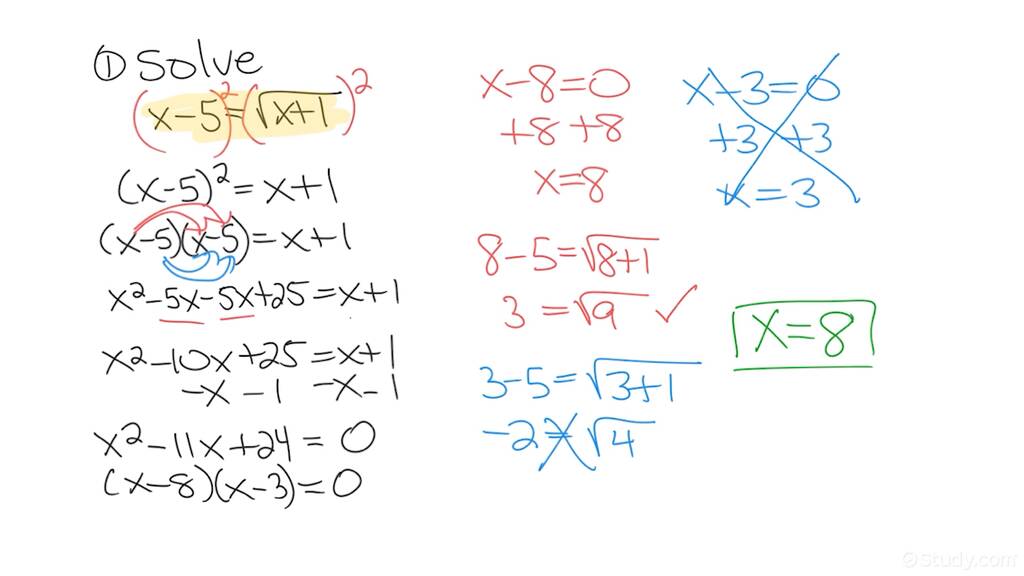 ① Solve
(x-5)²=(√x+1)²
(x-5)²=x+1
(x-5)(x-5)=x+1
x²-5x-5x+25=x+1
x²-10x+25=x+1
-x-1 -x-1
x²-11x+24=0
(x-8)(x-3)=0
x-8=0
+8 +8
x=8
8-5=√8+1
3=√9 ✓
3-5=√3+1
-2=√4
x-3=0
+3 +3
x=3
x=8
Study.com